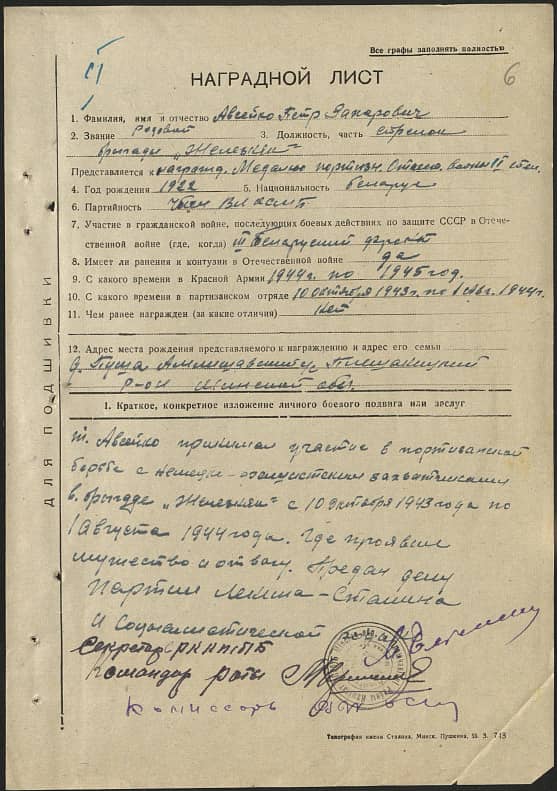 Все графы заполнять полностью
6
НАГРАДНОЙ ЛИСТ
1. Фамилия, имя и отчество Авсейко Петр Захарович
2. Звание рядовой 3. Должность, часть стрелок
бригады „Железняк"
Представляется к награжд. Медалью партизн. Отечес. войны II степ.
4. Год рождения 1922 5. Национальность беларус
6. Партийность Член ВЛКСМ
7. Участие в гражданской войне, последующих боевых действиях по защите СССР в Отече-
ственной войне (где, когда) III Беларуский фронт
8. Имеет ли ранения и контузии в Отечественной войне да
9. С какого времени в Красной Армии 1944г. по 1945 год.
10. С какого времени в партизанском отряде 10 октября 1943г. по 1 Авг. 1944г.
11. Чем ранее награжден (за какие отличия) нет
12. Адрес места рождения представляемого к награждению и адрес его семьи
д. Пуща
р-он Минской обл.
1. Краткое, конкретное изложение личного боевого подвига или заслуг
т. Авсейко принимал участие в партизанской
борьбе с немецко-фашистскими захватчиками
в бригаде „Железняк" с 10 октября 1943 года по
1 Августа 1944 года. Где проявил
мужество и отвагу. Предан делу
Партии Ленина-Сталина
и Социалистической
Секретарь
Командир роты
Комиссар
ДЛЯ ПОДШИВКИ
Типография имени Сталина, Минск, Пушкина, 55. З. 713